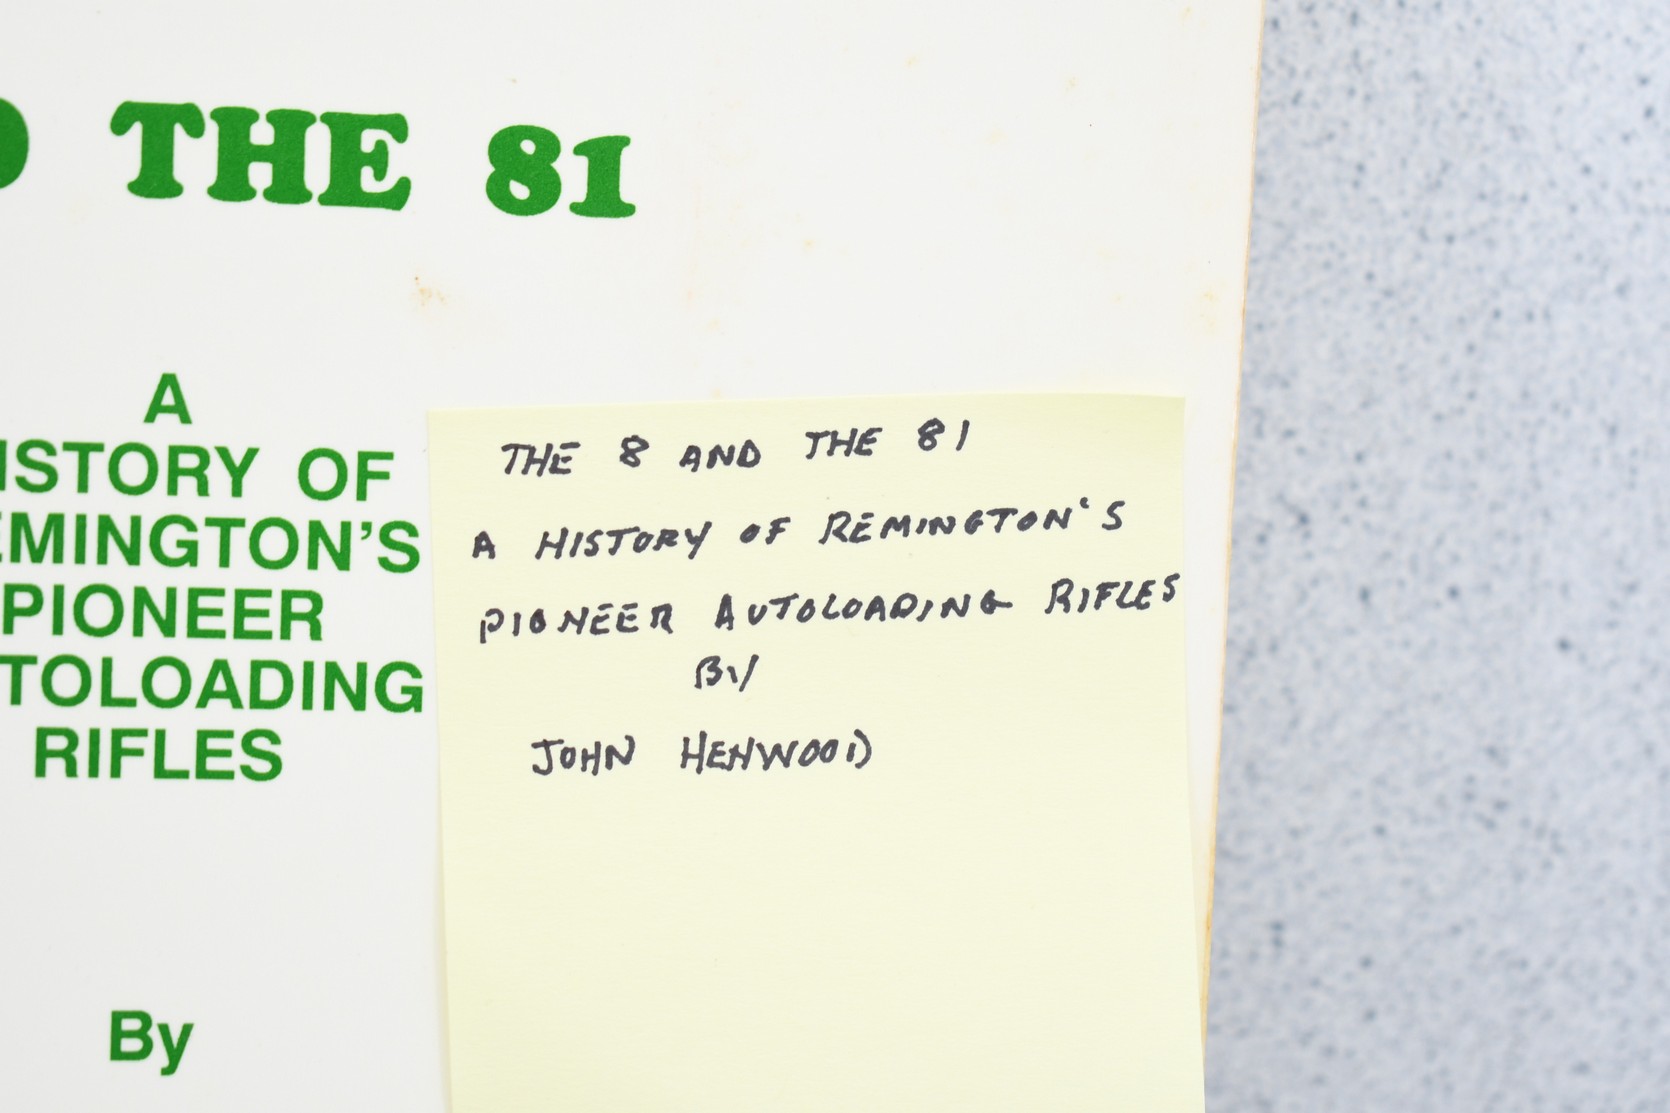 THE 81
A
ISTORY OF
EMINGTON'S
PIONEER
TOLOADING
RIFLES
By
THE 8 AND THE 81
A HISTORY OF REMINGTON'S
PIONEER AUTOLOADING RIFLES
BY
JOHN HENWOOD